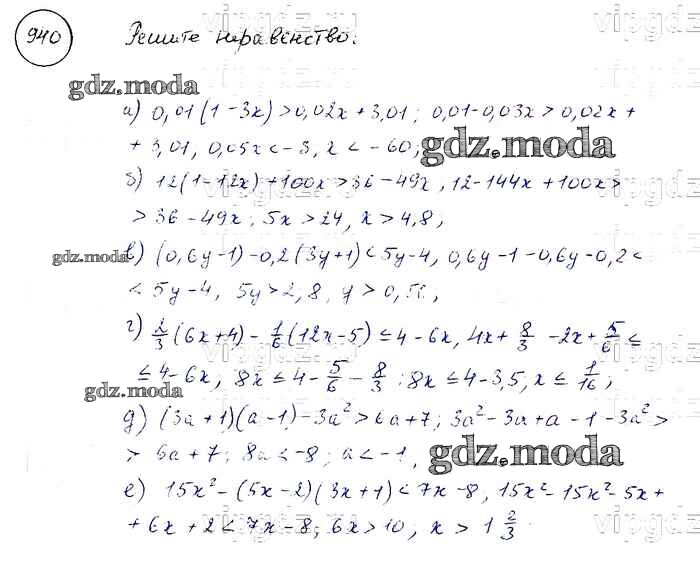 940 Решите неравенство.
gdz.moda
а) 0,01(1-3x)>0,02x+3,01; 0,01-0,03x>0,02x+
+3,01, 0,05x<-3, x<-60;
gdz.moda
б) 12(1-12x)+100x>36-49x, 12-144x+100x>
>36-49x; 5x>24, x>4,8,
gdz.moda
в) (0,6y-1)-0,2(3y+1)<5y-4, 0,6y-1-0,6y-0,2<
<5y-4, 5y>2,8, y>0,56,
г) 2/3(6x+4)-1/6(12x-5)≤4-6x, 4x+8/3-2x+5/6≤
≤4-6x, 8x≤4-5/6-8/3; 8x≤4-3,5, x≤1/16;
gdz.moda
д) (3a+1)(a-1)-3a²>6a+7; 3a²-3a+a-1-3a²>
>6a+7; 8a<-8; a<-1,
gdz.moda
е) 15x²-(5x-2)(3x+1)<7x-8, 15x²-15x²-5x+
+6x+2<7x-8; 6x>10, x>1 2/3.
vipgdz